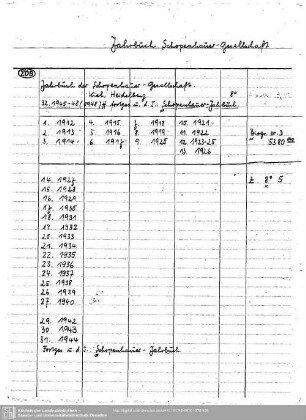 Jahrbuch Schopenhauer-Gesellschaft
ZDB
Jahrbuch der Schopenhauer-Gesellschaft.
Kiel. Heidelberg 8°
32. 1945-48 (1948) ff. fortges. u. d. T.: Schopenhauer-Jahrbuch
1. 1912 4. 1915 7. 1918 10. 1921
2. 1913 5. 1916 8. 1919 11. 1922 Biogr.
3. 1914 6. 1917 9. 1920 12. 1923-25
13. 1926
14. 1927 Z 8° 5
15. 1928
16. 1929
17. 1930
18. 1931
19. 1932
20. 1933
21. 1934
22. 1935
23. 1936
24. 1937
25. 1938
26. 1939
27. 1940
29. 1942
30. 1943
31. 1944
Fortges. u. d. T.: Schopenhauer-Jahrbuch